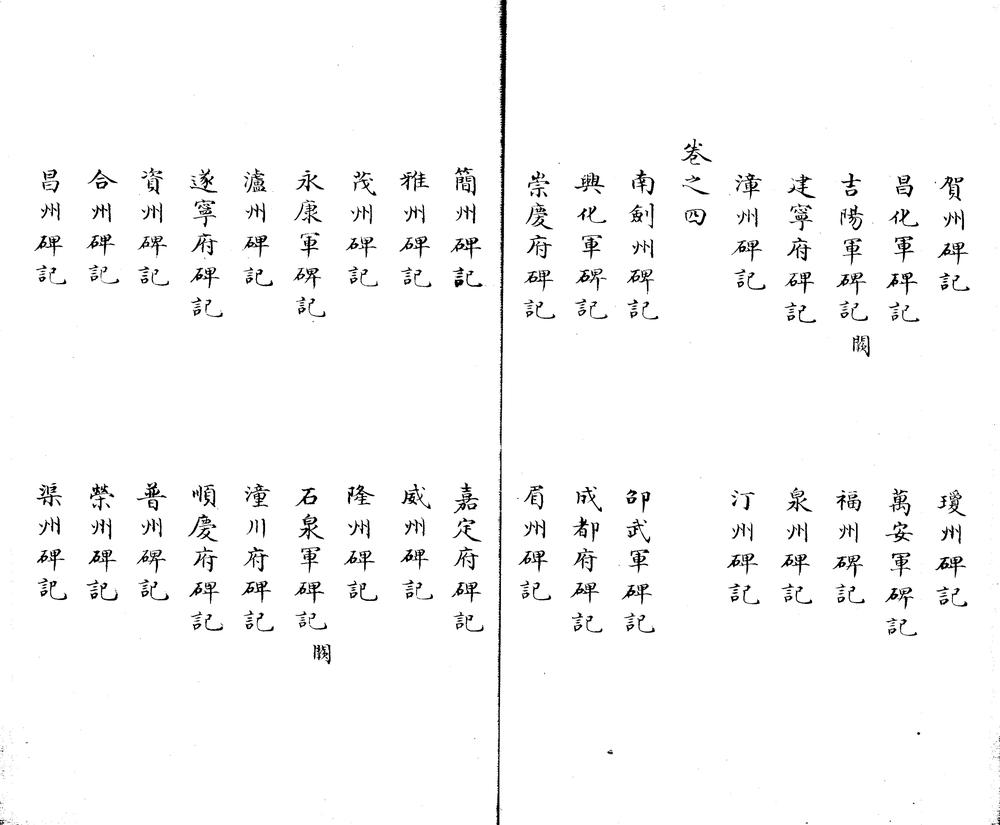 賀州碑記　瓊州碑記
昌化軍碑記　萬安軍碑記
吉陽軍碑記闕　福州碑記
建寧府碑記　泉州碑記
漳州碑記　汀州碑記
卷之四
南劍州碑記　邵武軍碑記
興化軍碑記　成都府碑記
崇慶府碑記　眉州碑記
簡州碑記　嘉定府碑記
雅州碑記　威州碑記
茂州碑記　隆州碑記
永康軍碑記　石泉軍碑記闕
瀘州碑記　潼川府碑記
遂寧府碑記　順慶府碑記
資州碑記　普州碑記
合州碑記　榮州碑記
昌州碑記　渠州碑記